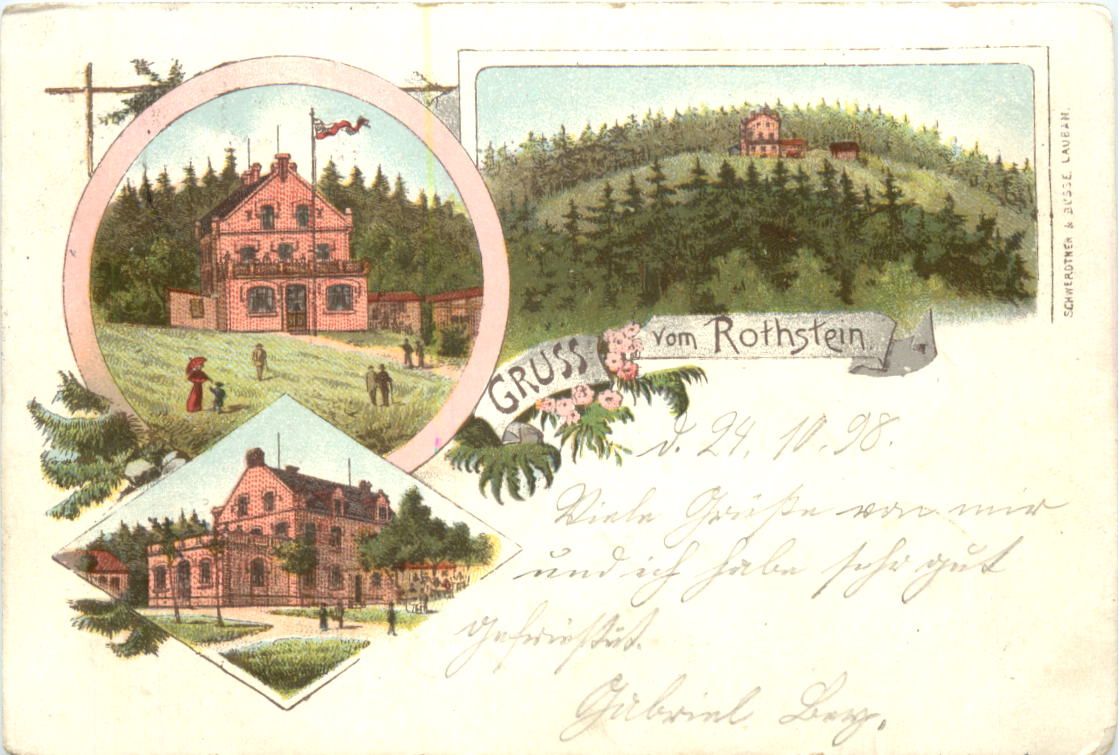 GRUSS vom Rothstein.
SCHWERDTNER & BÜSSE, LAUBAN.
d. 24. 10. 98.
Viele Grüße von mir
und ich habe sehr gut
gefrühstükt.
Gabriel